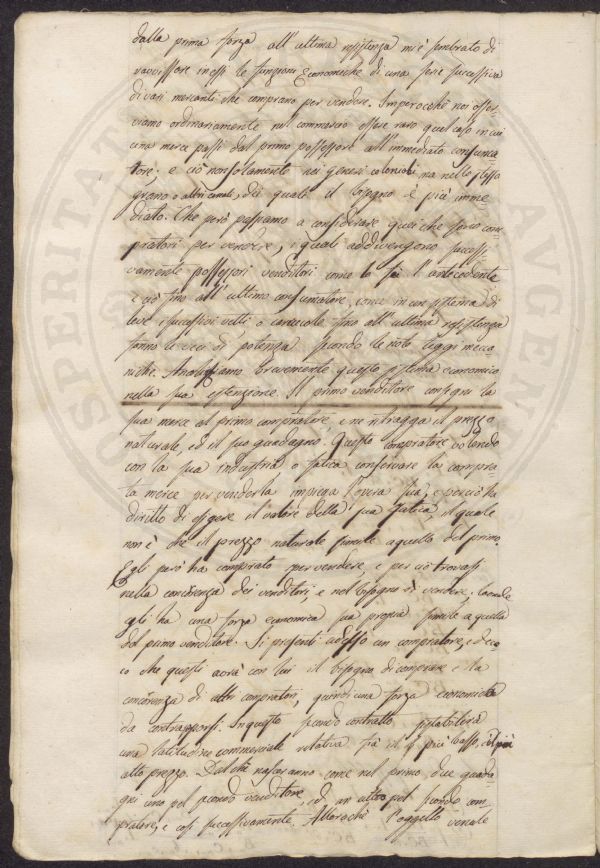 dalla prima forza all'ultima resistenza mi è sembrato di
ravvissare in essi le funzioni Economiche di una serie successiva
di vari mercanti che comprano per vendere. Imperocchè noi osser-
viamo ordinariamente nel commercio essere raro quel caso in cui
una merce passi dal primo possessore all'immediato consuma-
tore; e ciò non solamente nei generi coloniali, ma nello stesso
grano o altri cereali, dei quali il bisogno è più imme
diato. Che però passiamo a considerare quei che sono com
pratori per vendere, i quali addivengono successi-
vamente possessori venditori come lo fu l'antecedente
e ciò fino all'ultimo consumatore, come in un sistema di
leve i successivi vetti o carrucole fino all'ultima resistenza
fanno le veci di potenza secondo le note leggi mecca-
niche. Analizziamo brevemente questo sistema economico
nella sua estensione. Il primo venditore consegni la
sua merce al primo compratore, e ne ritragga il prezzo
naturale, ed il suo guadagno. Questo compratore volendo
con la sua industria o fatica conservare la compra
ta merce per venderla impiega l'opera sua, e perciò ha
diritto di esigere il valore della sua fatica, il quale
non è che il prezzo naturale simile a quello del primo.
Egli però ha comprato per vendere, e per ciò trovasi
nella concorenza dei venditori, e nel bisogno di vendere; laonde
egli ha una forza economica sua propria simile a quella
del primo venditore. Si presenti adesso un compratore, ed ec-
co che questi avrà con lui il bisogno di comprare e la
concorenza di altri compratori, quindi una forza economica
da contrapporsi. In questo secondo contratto si stabilirà
una latitudine commerciale relativa frà il più basso, e il più
alto prezzo. Dal che nasceranno come nel primo due guada-
gni uno pel secondo venditore, ed un altro pel secondo com-
pratore, e così successivamente. Allorchè l'oggetto venale